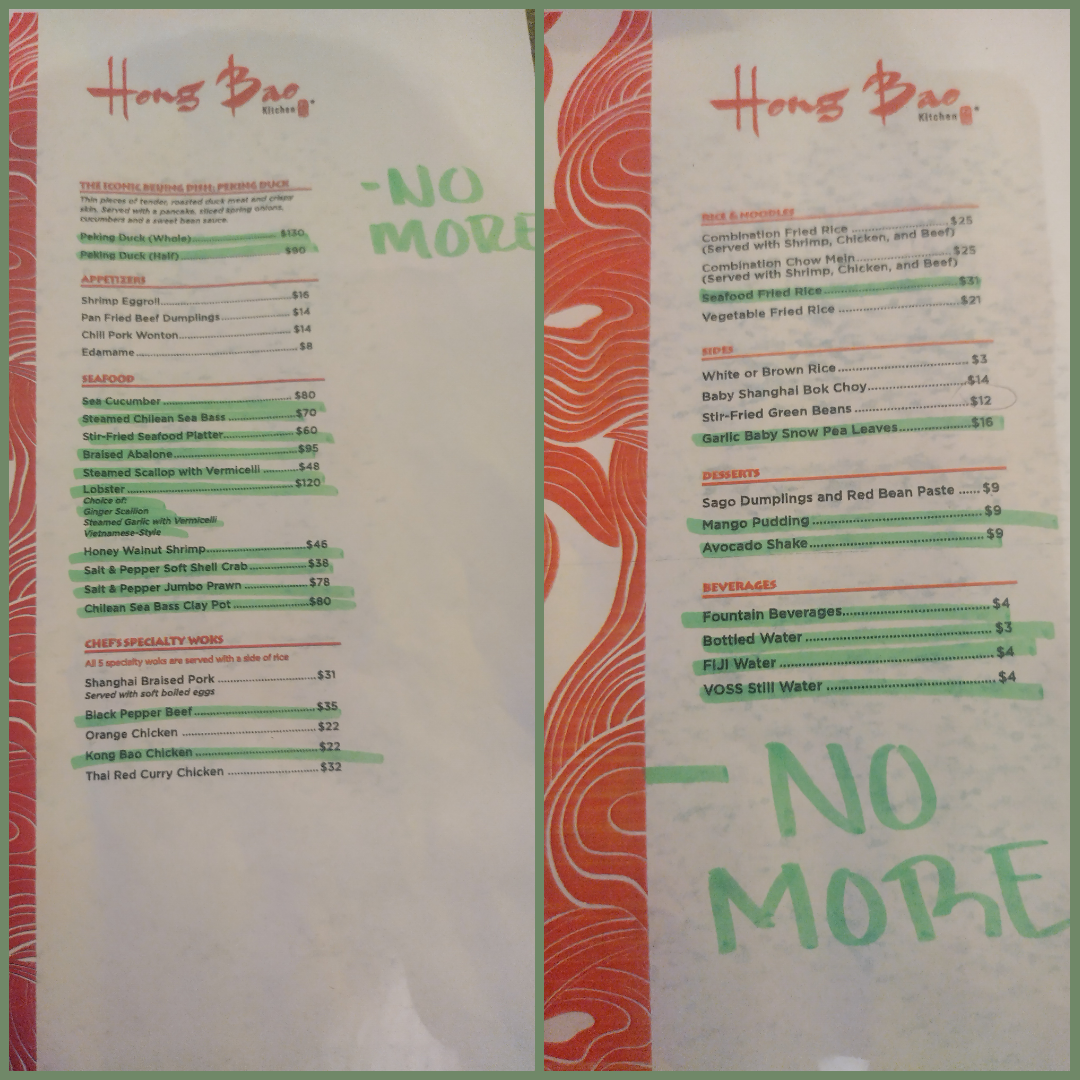 Hong Bao
Kitchen
THE ICONIC BEIJING DISH: PEKING DUCK
Thin pieces of tender, roasted duck meat and crispy
skin. Served with a pancake, sliced spring onions,
cucumbers and a sweet bean sauce.
Peking Duck (Whole) $130
Peking Duck (Half) $90
-NO
MORE
APPETIZERS
Shrimp Eggroll $16
Pan Fried Beef Dumplings $14
Chili Pork Wonton $14
Edamame $8
SEAFOOD
Sea Cucumber $80
Steamed Chilean Sea Bass $70
Stir-Fried Seafood Platter $60
Braised Abalone $95
Steamed Scallop with Vermicelli $48
Lobster $120
Choice of:
Ginger Scallion
Steamed Garlic with Vermicelli
Vietnamese-Style
Honey Walnut Shrimp $46
Salt & Pepper Soft Shell Crab $38
Salt & Pepper Jumbo Prawn $78
Chilean Sea Bass Clay Pot $80
CHEF'S SPECIALTY WOKS
All 5 specialty woks are served with a side of rice
Shanghai Braised Pork $31
Served with soft boiled eggs
Black Pepper Beef $35
Orange Chicken $22
Kong Bao Chicken $22
Thai Red Curry Chicken $32
Hong Bao
Kitchen
RICE & NOODLES
Combination Fried Rice $25
(Served with Shrimp, Chicken, and Beef)
Combination Chow Mein $25
(Served with Shrimp, Chicken, and Beef)
Seafood Fried Rice $31
Vegetable Fried Rice $21
SIDES
White or Brown Rice $3
Baby Shanghai Bok Choy $14
Stir-Fried Green Beans $12
Garlic Baby Snow Pea Leaves $16
DESSERTS
Sago Dumplings and Red Bean Paste $9
Mango Pudding $9
Avocado Shake $9
BEVERAGES
Fountain Beverages $4
Bottled Water $3
FIJI Water $4
VOSS Still Water $4
- NO
MORE